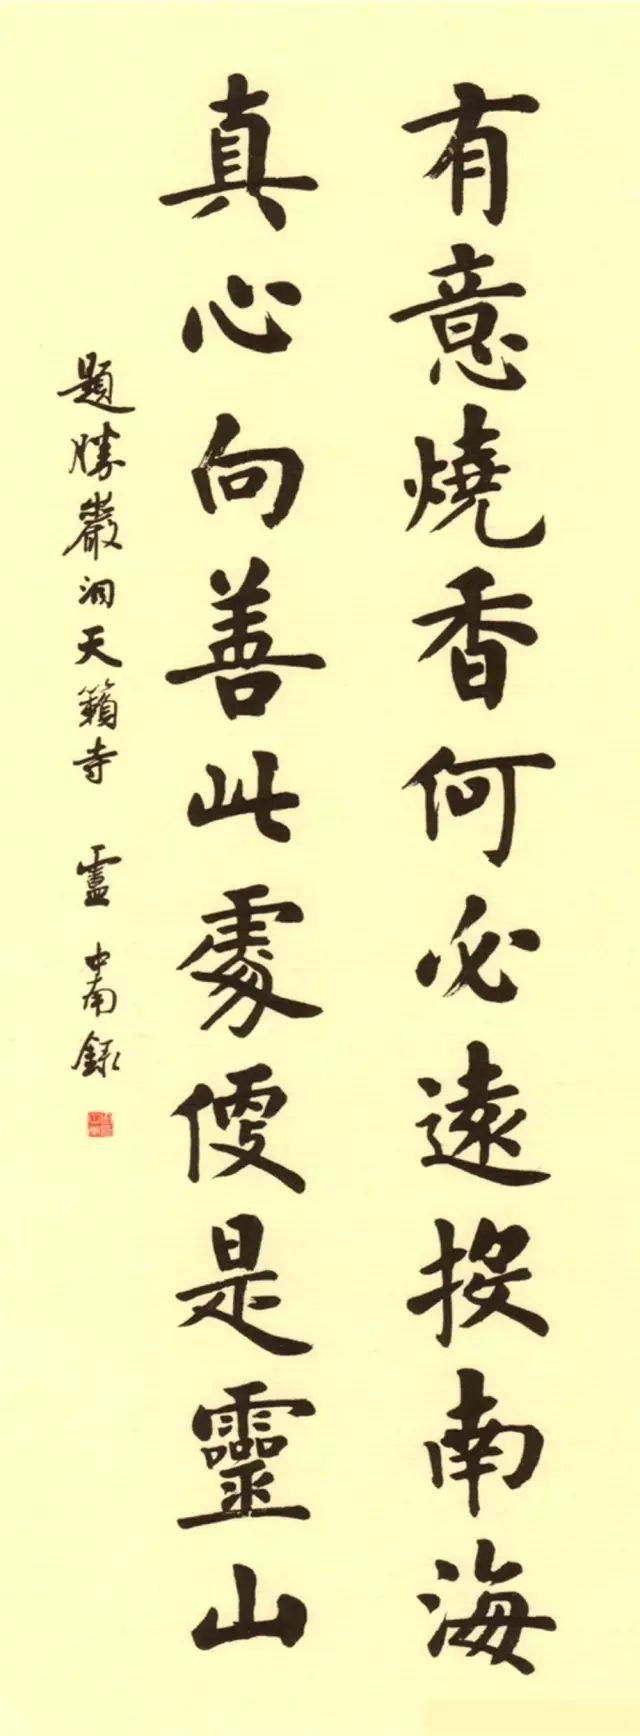 有意燒香何必遠投南海
真心向善此處便是靈山
題勝巖洞天籟寺 盧中南録